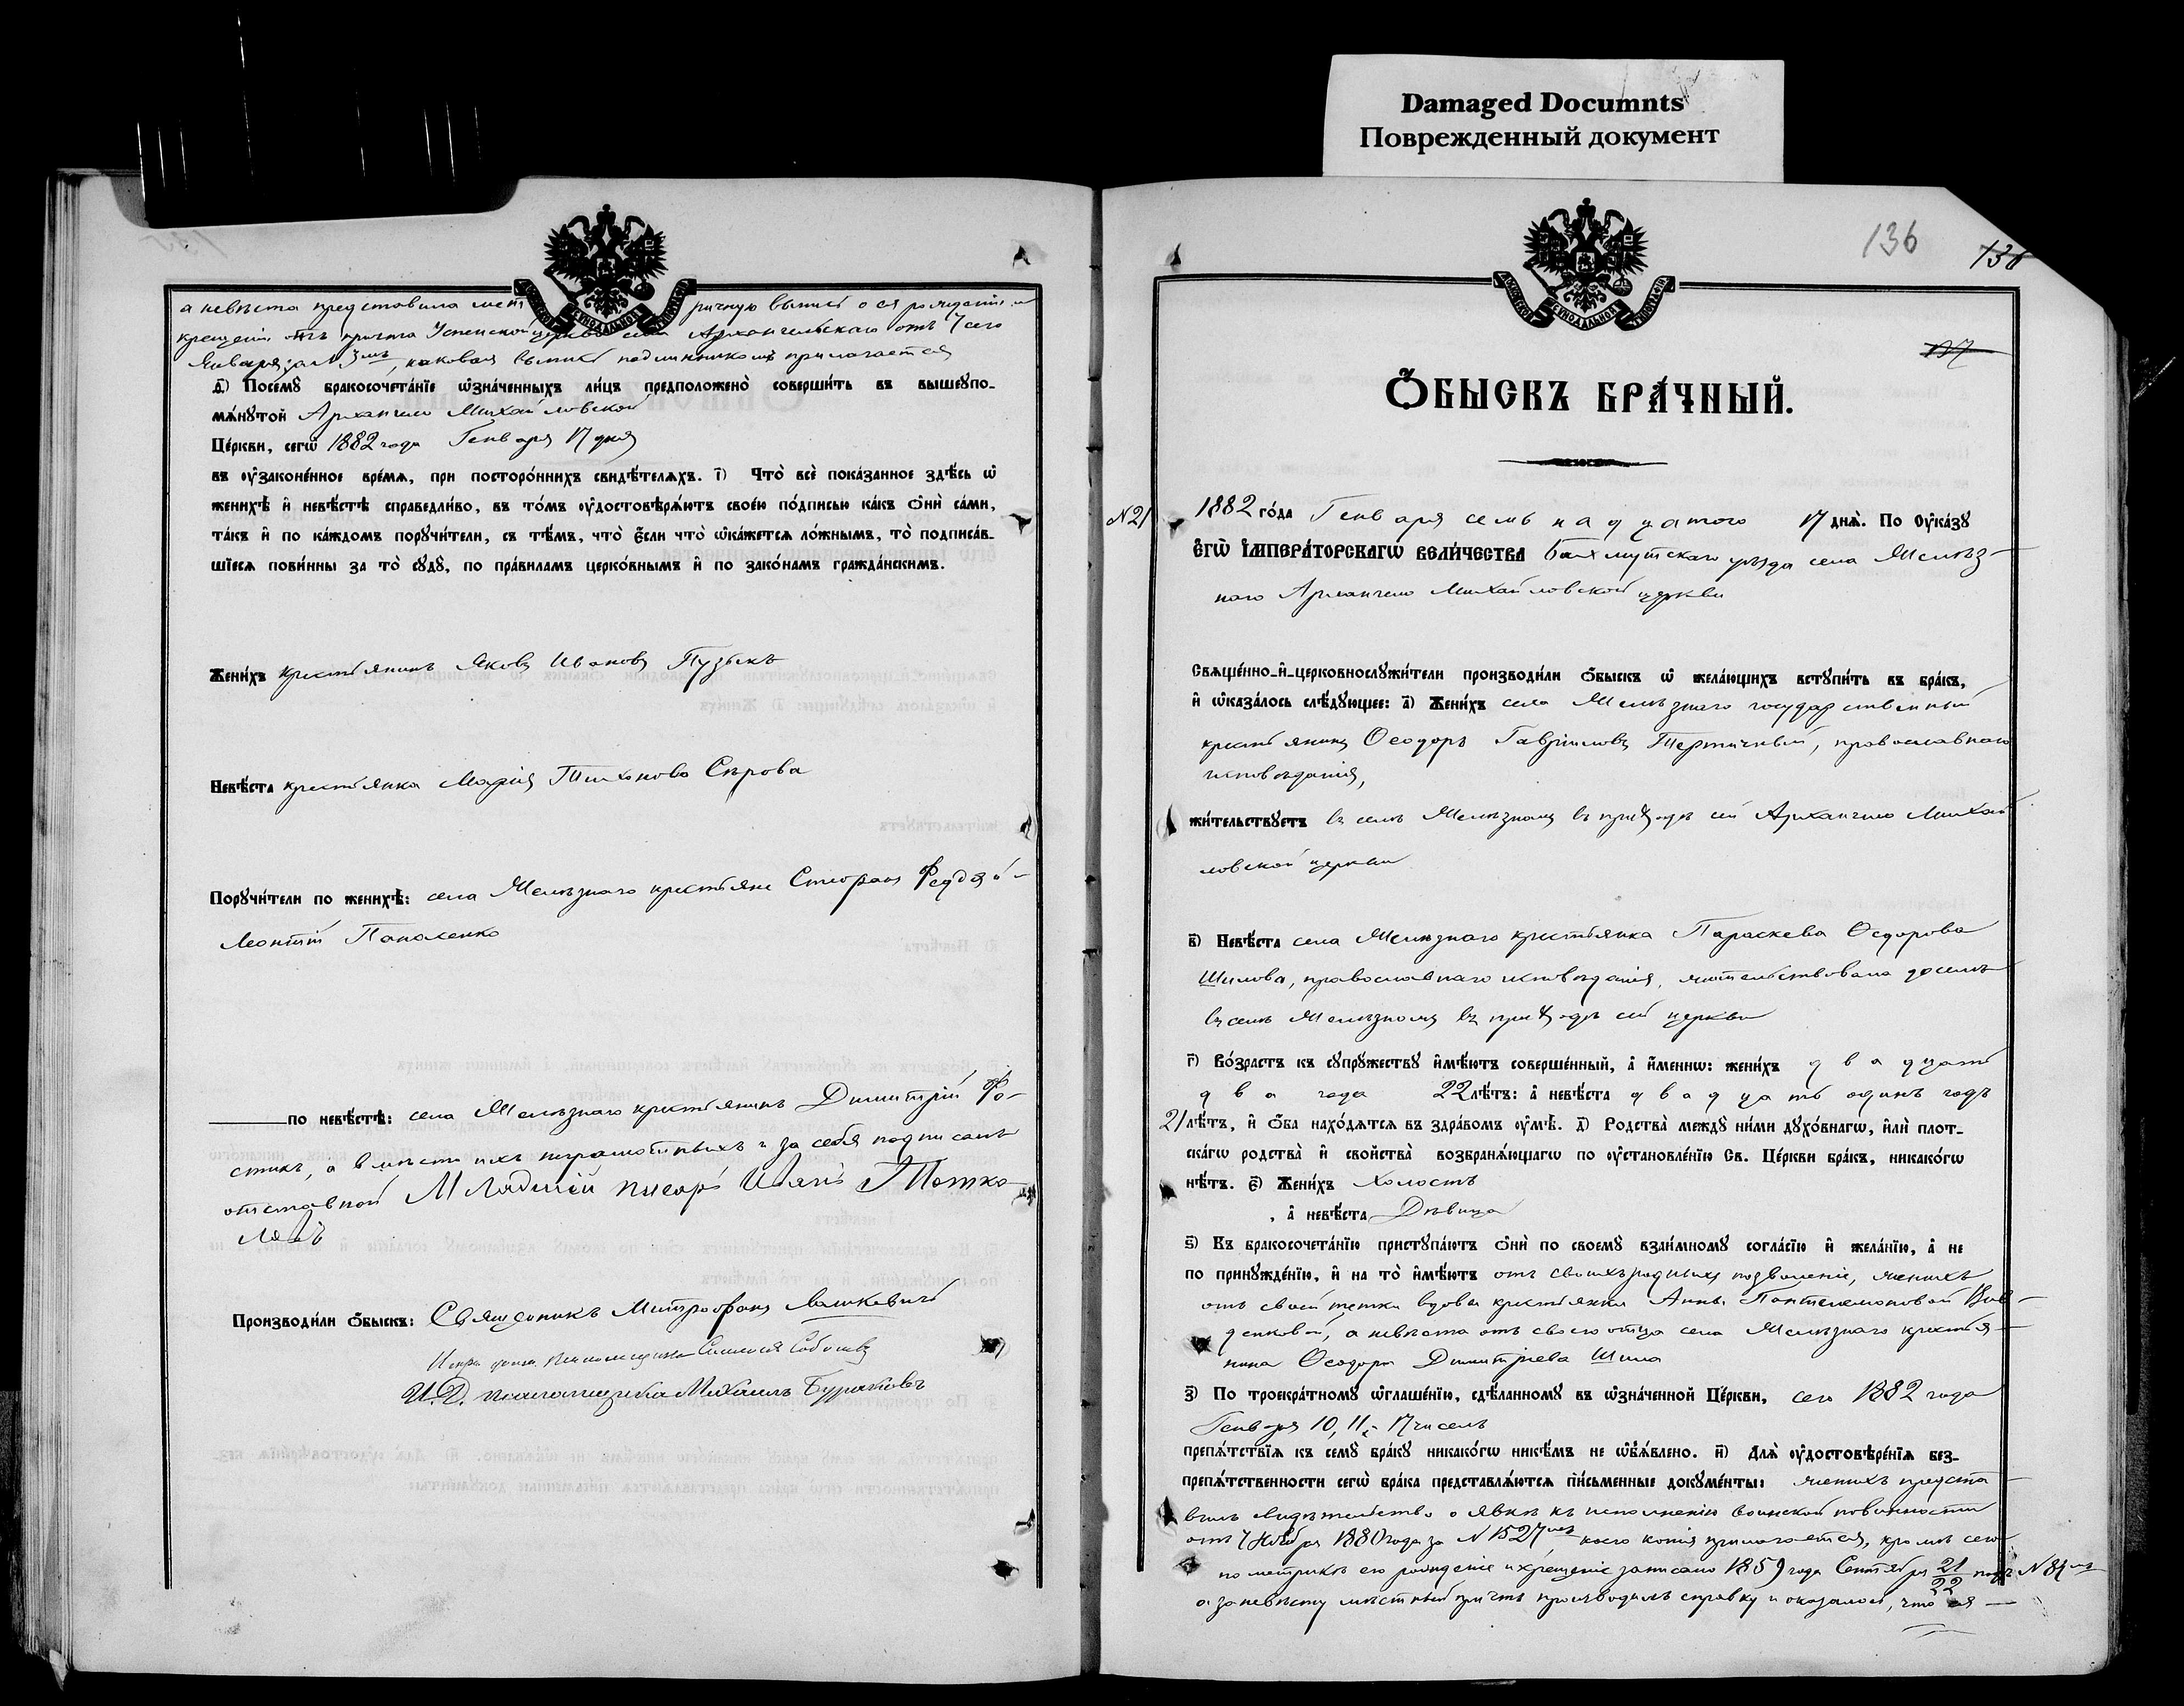 Damaged Documnts
Поврежденный документ
а невѣста представила метричную выпись о ея рожденіи и
крещеніи отъ причта Успенской церкви села Архангельскаго отъ 7 сего
Января за № 3мъ, каковая выпись подлинникомъ прилагается
д҃) Посему̀ бракосочета́нїе ѡ҆зна́ченныхъ ли́цъ предположено̀ соверши́ть въ вышеупо-
мѧ́нутой Архангело Михайловской
Це́ркви, сегѡ̀ 1882 года Генваря 17 дня
въ ᲂу҆законе́нное вре́мѧ, при посторо́ннихъ свидѣ́телѧхъ. і҃) Что̀ всѐ пока́занное здѣ́сь ѡ҆
женихѣ̀ и҆ невѣ́стѣ справедли́во, въ то́мъ ᲂу҆достовѣрѧ́ютъ свое́ю по́дписью ка́къ ѻ҆нѝ са́ми,
та́къ и҆ по ка́ждомъ поручи́тели, съ тѣ́мъ, что̀ є҆́сли что̀ ѡ҆ка́жется ло́жнымъ, то̀ подписа́в-
шїеся пови́нны за то̀ суду̀, по пра́виламъ церко́внымъ и҆ по зако́намъ гражда́нскимъ.
Жени́хъ крестьянинъ Яковъ Ивановъ Пузыкъ
Невѣ́ста крестьянка Марія Тихонова Сѣрова
Поручи́тели по женихѣ̀: села Желѣзнаго крестьяне Стефанъ Федяй
Леонтій Панасенко
по невѣ́стѣ: села Желѣзнаго крестьянинъ Димитрій Фо-
стикъ, а вмѣсто ихъ неграмотныхъ и за себя подписалъ
отставной Младшій писарь Иванъ
Производи́ли ѻ҆́быскъ: Священникъ Митрофанъ Вашкевичъ
И. Д. псаломщика Михаилъ Бураковъ
136
136
137
Ѻ҆БЫСКЪ БРА́ЧНЫЙ.
№ 21
1882 го́да Генваря семьнадцатого 17 днѧ̀. По Оу҆ка́зу
Є҆ГѠ̀ И҆МПЕРА́ТОРСКАГѠ ВЕЛИ́ЧЕСТВА Бахмутскаго уѣзда села Желѣз-
наго Архангело Михайловской церкви
Свѧще́нно-и҆-церковнослужи́тели производи́ли ѻ҆́быскъ ѡ҆ жела́ющихъ вступи́ть въ бра́къ,
и҆ ѡ҆каза́лось слѣ́дующее: а҃) Жени́хъ села Желѣзнаго государственный
крестьянинъ Ѳеодоръ Гавріиловъ Тертичный, православнаго
исповѣданія,
жи́тельствуетъ въ селѣ Желѣзномъ въ приходѣ сей Архангело Михай
ловской церкви
в҃) Невѣ́ста села Желѣзнаго крестьянка Параскева Ѳедорова
Шилова, православнаго исповѣданія, жительствовала доселѣ
въ селѣ Желѣзномъ въ приходѣ сей церкви
г҃) Во́зрастъ къ супру́жеству и҆мѣ́ютъ соверше́нный, а҆ и҆́меннѡ: жени́хъ двадцати
два года 22 лѣ́тъ: а҆ невѣ́ста двадцать одинъ годъ
21 лѣ́тъ, и҆ ѻ҆́ба нахо́дѧтсѧ въ здра́вомъ ᲂу҆мѣ̀. д҃) Родства̀ между ни́ми духо́внагѡ, и҆лѝ пло́т-
ска́гѡ родства̀ и҆ свойства̀ возбранѧ́ющагѡ по ᲂу҆становле́нїю Св. Це́ркви бра́къ, никако́гѡ
нѣ́тъ. є҃) Жени́хъ Холостъ
, а҆ невѣ́ста Дѣвица
ѕ҃) Къ бракосочета́нїю приступа́ютъ ѻ҆нѝ по своему̀ взаи́мному согла́сїю и҆ жела́нїю, а҆ не
по принужде́нїю, и҆ на то̀ и҆мѣ́ютъ отъ своихъ родныхъ позволеніе, женихъ
отъ своей тетки вдовы крестьянки Анны Пантелеимоновой
а невѣста отъ своего отца села Желѣзнаго крестья-
нина Ѳеодора Димитріева Шила
з҃) По троекра́тному ѡ҆глаше́нїю, сдѣ́ланному въ ѡ҆зна́ченной Це́ркви, сего 1882 года
Генваря 10, 11, и 17 чиселъ
препѧ́тствїѧ къ сему̀ бра́ку никако́гѡ никѣ́мъ не ѡ҆бъѧ́влено. и҃) Длѧ̀ ᲂу҆достовѣре́нїѧ без-
препѧ́тственности сегѡ̀ бра́ка представлѧ́ютсѧ пи́сьменные докуме́нты: женихъ предста-
вилъ свидѣтельство о явкѣ къ исполненію воинской повинности
отъ 7 Ноября 1880 года за № 1527мъ коего копія прилагается, кромѣ сего
по метрикѣ его рожденіе и крещеніе записано 1859 года Сентября 21/22 подъ № 84мъ
а за невѣсту мѣстный причтъ производилъ справку и оказалось, что ея